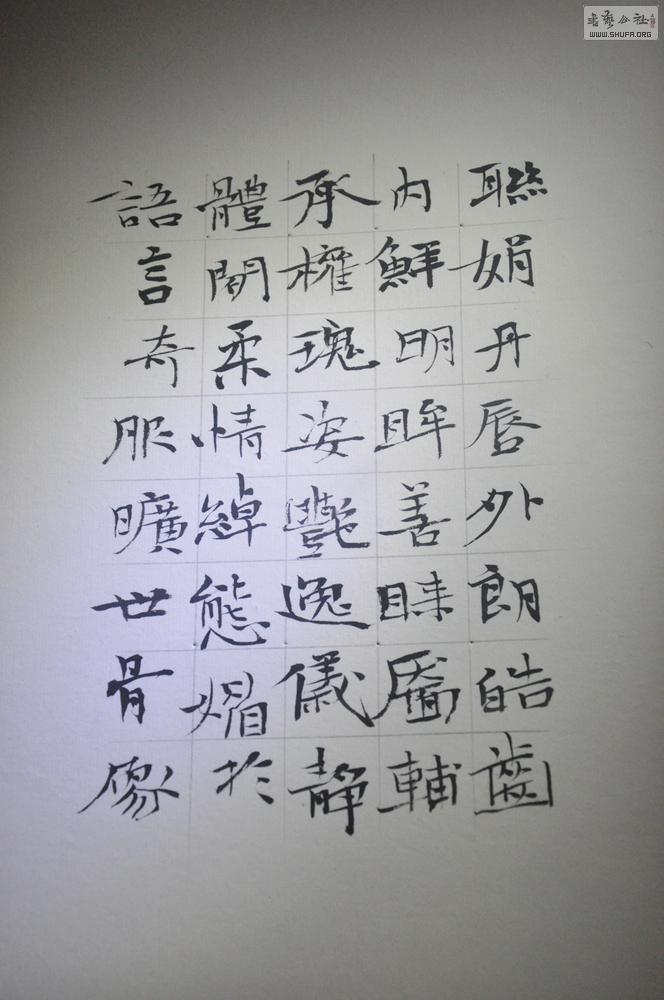 聯娟丹唇外朗皓齒
內鮮明眸善睞靨輔
承權瑰姿艷逸儀靜
體閒柔情綽態媚於
語言奇服曠世骨像
书艺公社
WWW.SHUFA.ORG